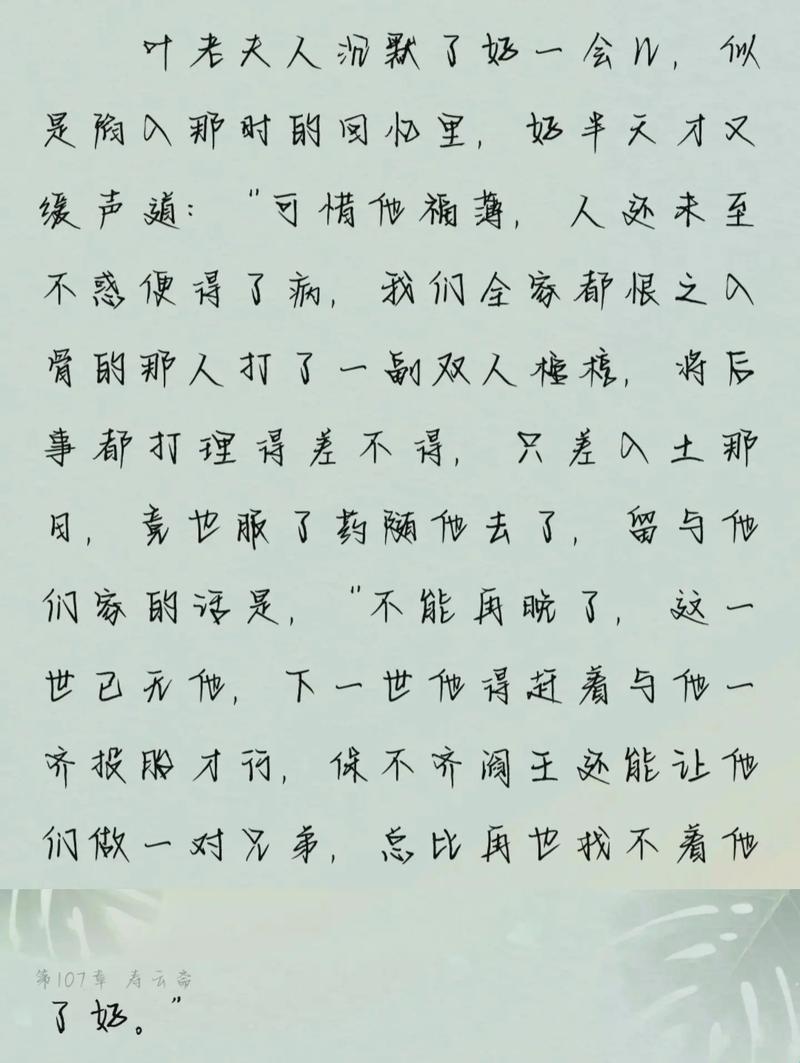 叶老夫人沉默了好一会儿，似
是陷入那时的回忆里，好半天才又
缓声道：“可惜他福薄，人还未至
不惑便得了病，我们全家都恨之入
骨的那人打了一副双人棺椁，将后
事都打理得差不得，只差入土那
日，竟也服了药随他去了，留与他
们家的话是，“不能再晚了，这一
世已无他，下一世他得赶着与他一
齐投胎才行，保不齐阎王还能让他
们做一对兄弟，总比再也找不着他
第107章 寿云斋
了好。”